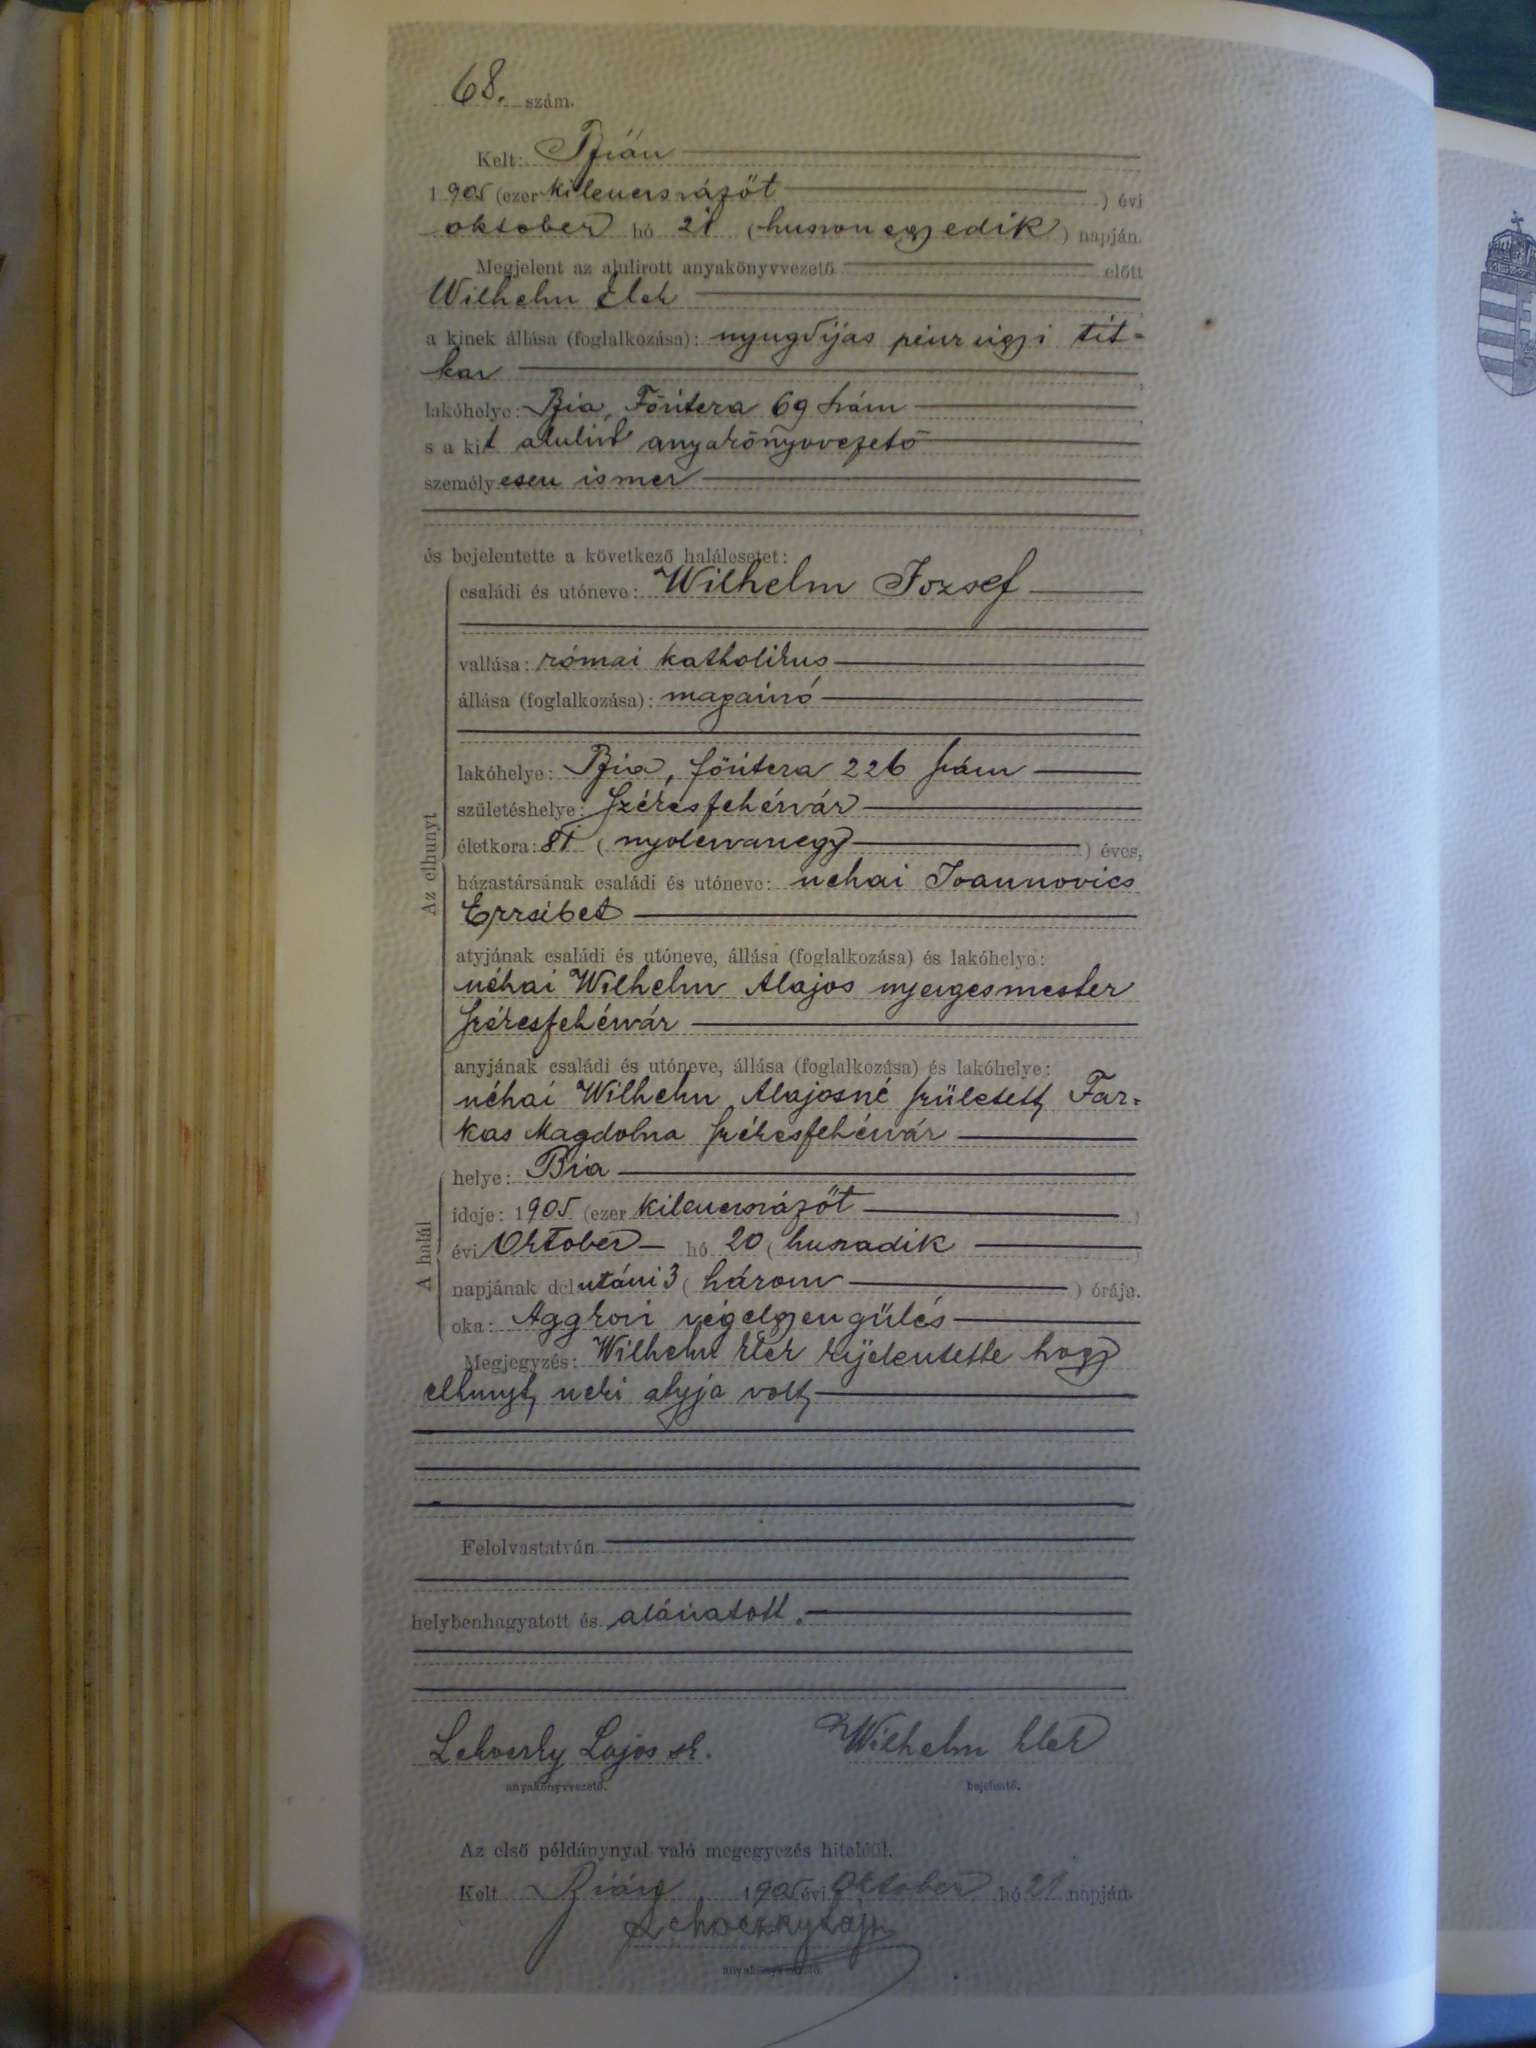 68. szám.
Kelt: Bián
1905 (ezer kilencszázöt ) évi
október hó 21 (huszonegyedik) napján.
Megjelent az alulirott anyakönyvvezető előtt
Wilhelm Elek
a kinek állása (foglalkozása): nyugdijas pénzügyi tit-
kár
lakóhelye: Bia, Főutcza 69 szám
s a kit alulirt anyakönyvvezető
személyesen ismer
és bejelentette a következő halálesetet:
Az elhunyt
családi és utóneve: Wilhelm József
vallása: római katholikus
állása (foglalkozása): magánzó
lakóhelye: Bia, főutcza 226 szám
születéshelye: Székesfehérvár
életkora: 81 (nyolczvanegy ) éves,
házastársának családi és utóneve: néhai Joannovics
Erzsébet
atyjának családi és utóneve, állása (foglalkozása) és lakóhelye:
néhai Wilhelm Alajos nyergesmester
Székesfehérvár
anyjának családi és utóneve, állása (foglalkozása) és lakóhelye:
néhai Wilhelm Alajosné született Far-
kas Magdolna Székesfehérvár
A halál
helye: Bia
ideje: 1905 (ezer kilencszázöt )
évi Október hó 20 (huszadik )
napjának délutáni 3 (három ) órája.
oka: Aggkori végelgyengülés
Megjegyzés: Wilhelm Elek kijelentette hogy
elhunyt neki atyja volt
Felolvastatván
helybenhagyatott és aláiratott.
Lajos sk. Wilhelm Elek
anyakönyvvezető. bejelentő.
Az első példánynyal való megegyezés hiteléül.
Kelt Bián 1905 évi Október hó 21 napján.
anyakönyvvezető.